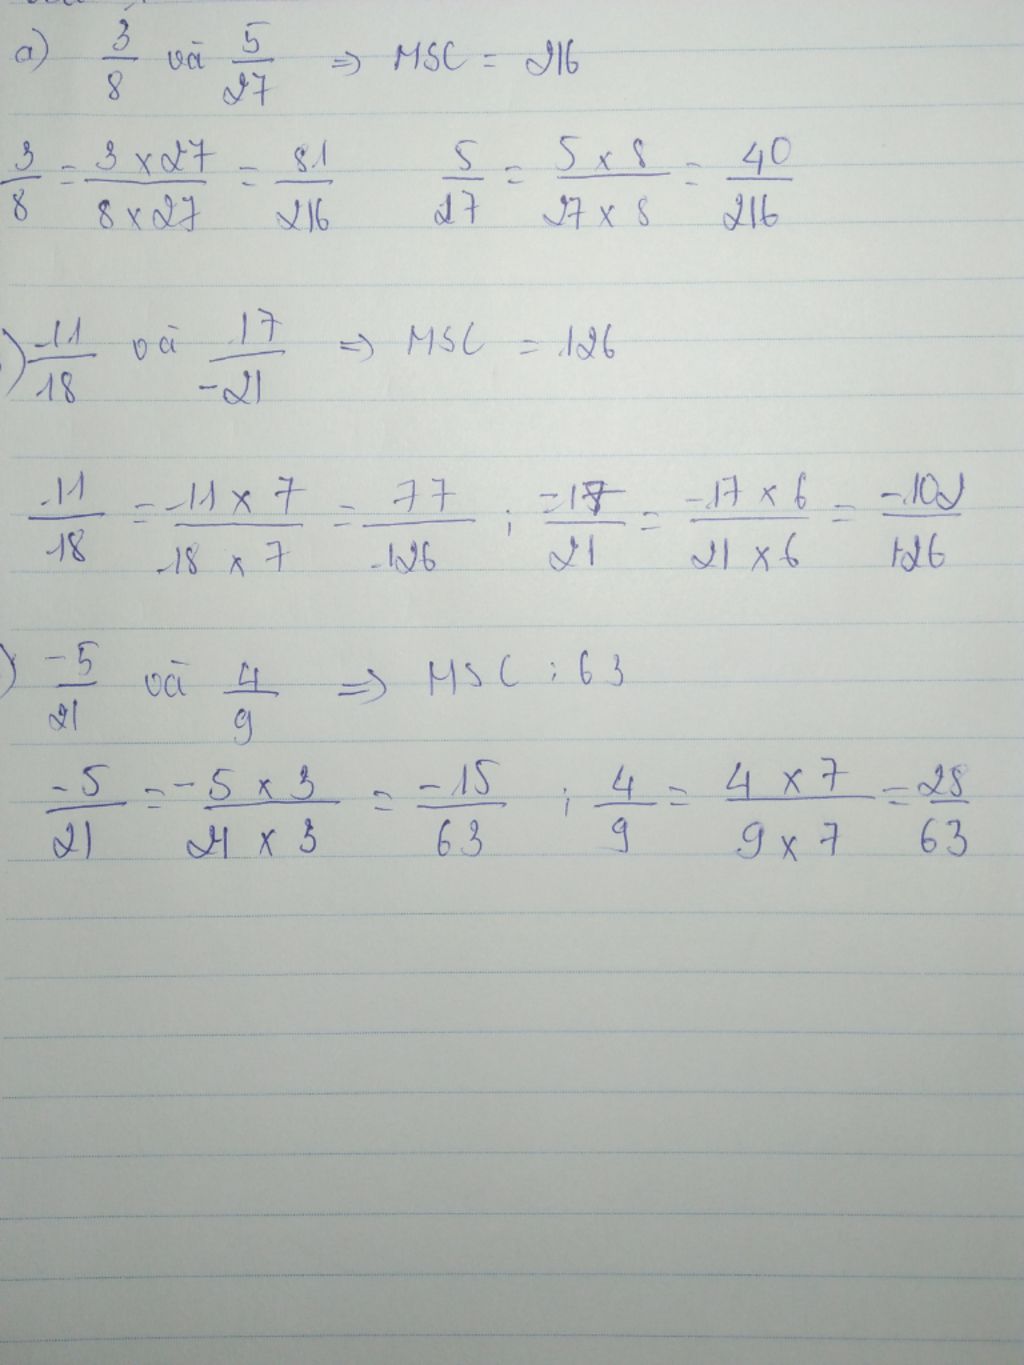 a) 3/8 và 5/27 => MSC = 216
3/8 = 3 x 27 / 8 x 27 = 81/216   5/27 = 5 x 8 / 27 x 8 = 40/216
) -11/18 và 17/-21 => MSC = 126
11/18 = -11 x 7 / 18 x 7 = 77/126 ; -17/21 = -17 x 6 / 21 x 6 = -102/126
) -5/21 và 4/9 => MSC : 63
-5/21 = -5 x 3 / 21 x 3 = -15/63 ; 4/9 = 4 x 7 / 9 x 7 = 28/63